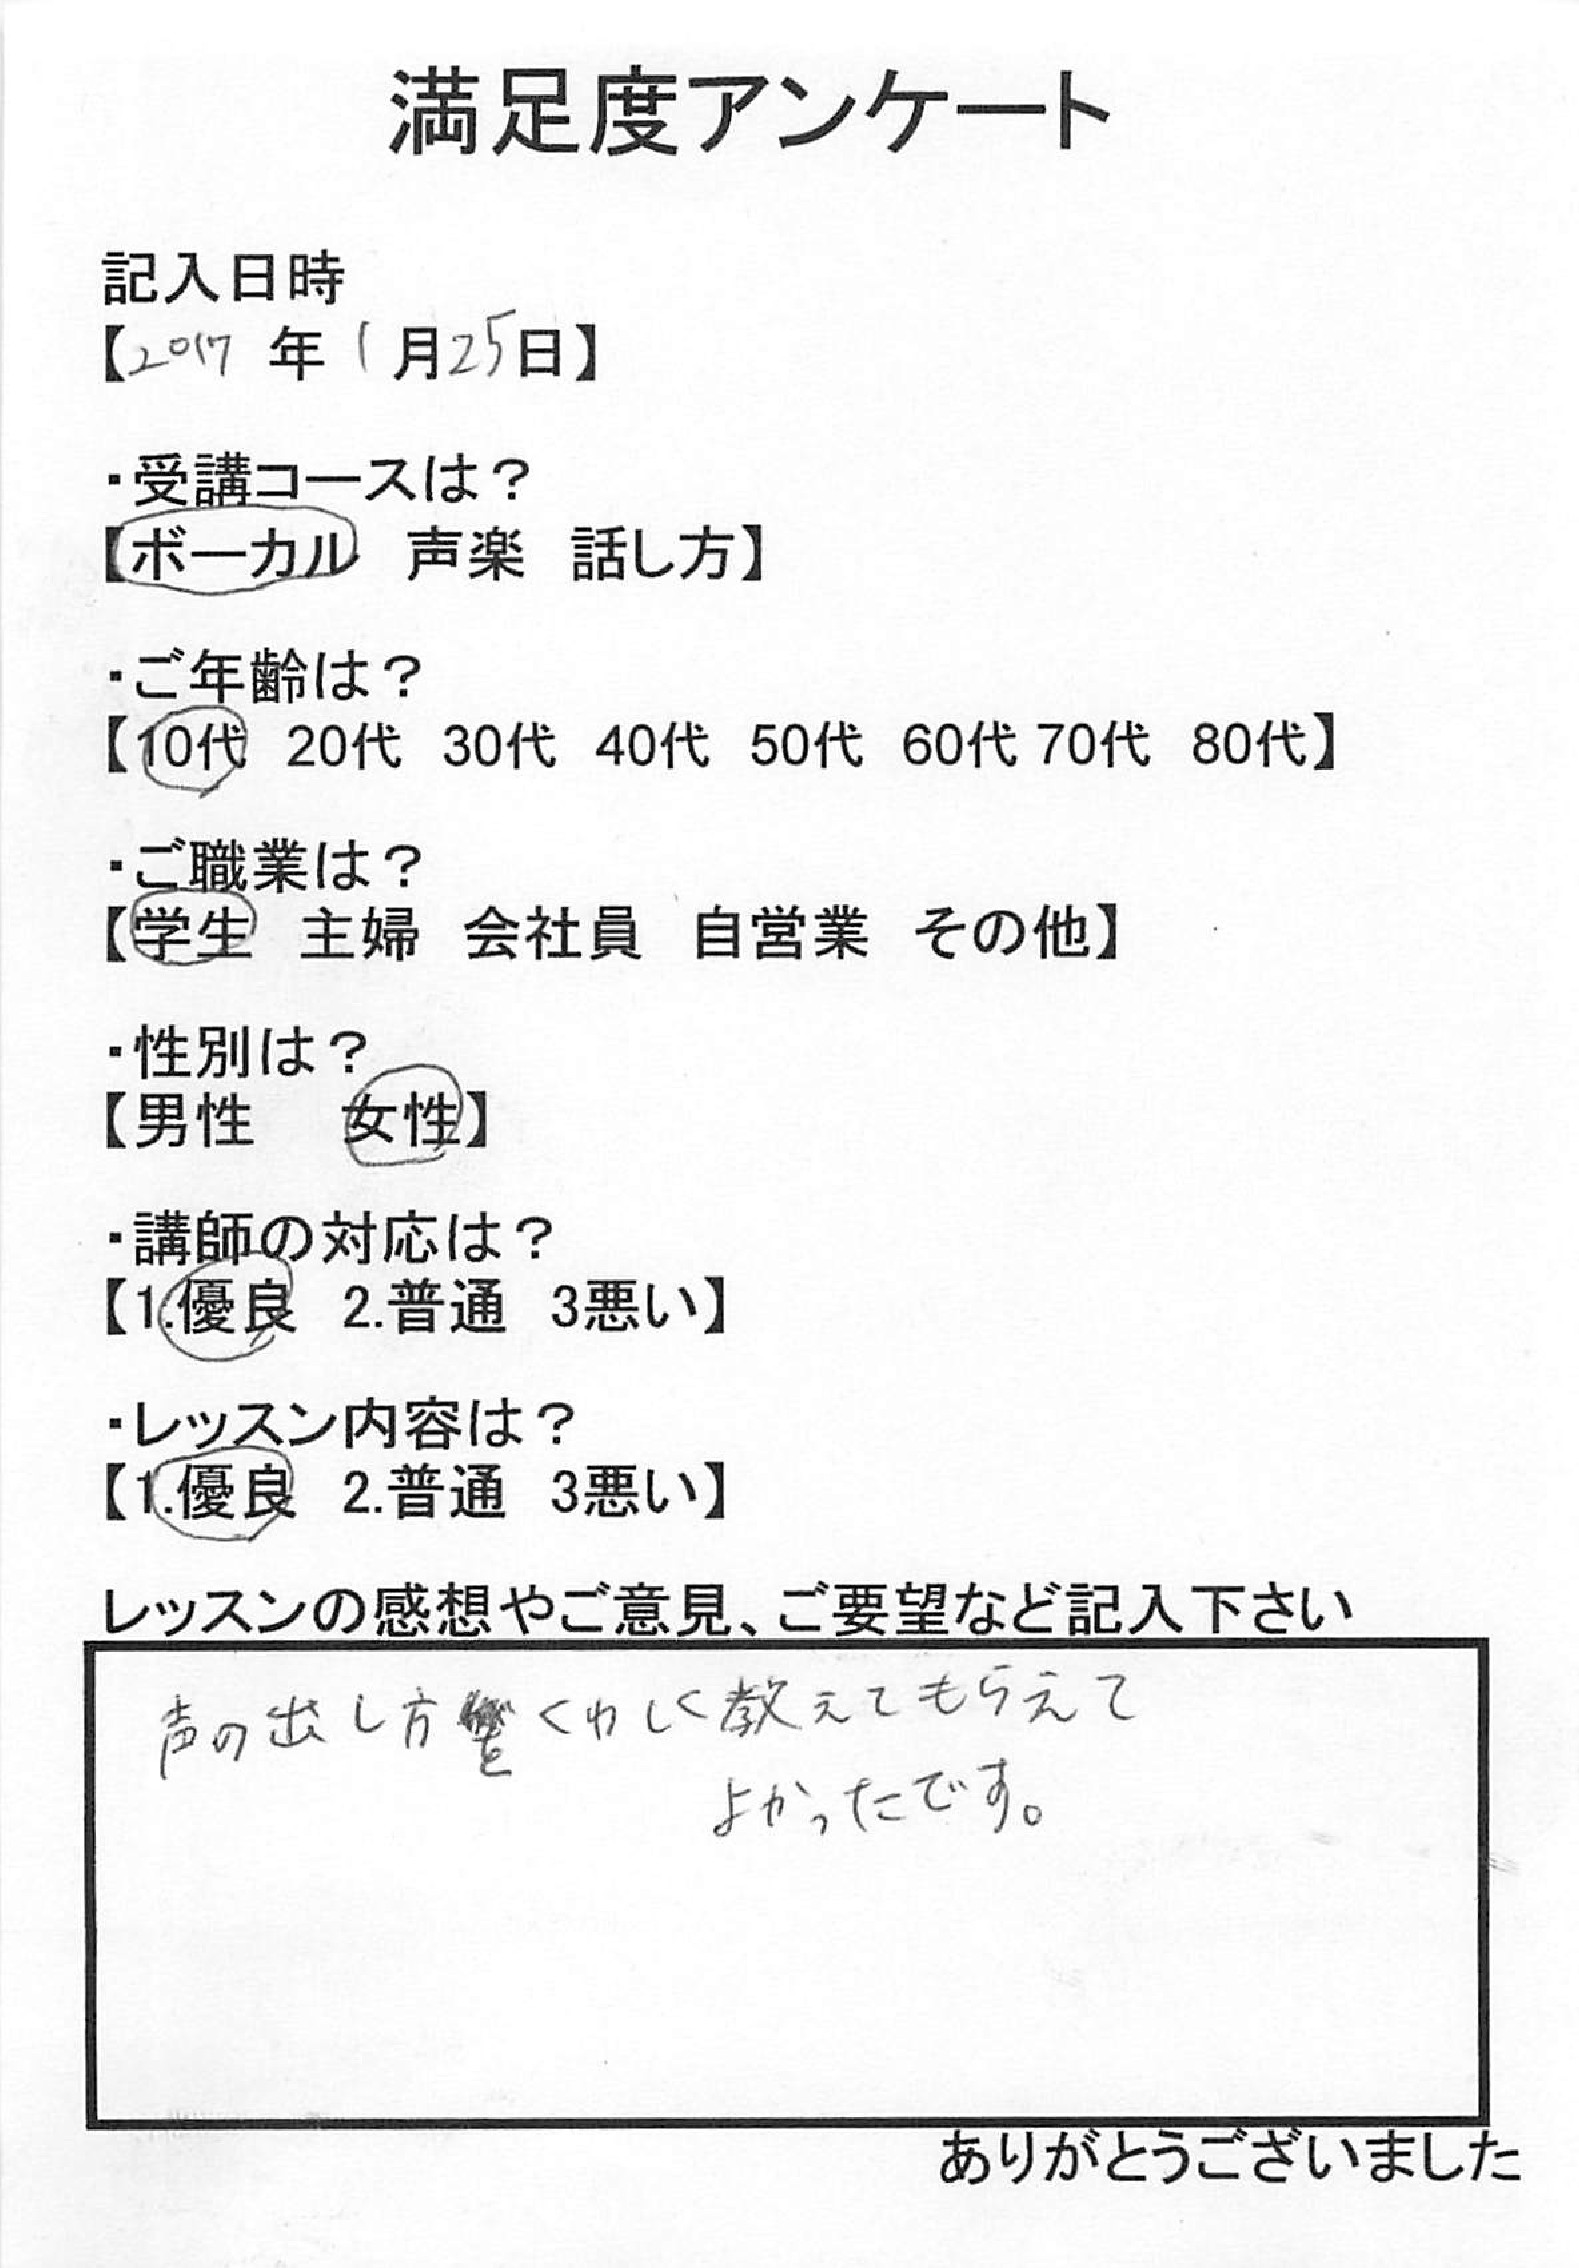 満足度アンケート
記入日時
【2017 年 1 月 25 日】
・受講コースは？
【ボーカル 声楽 話し方】
・ご年齢は？
【10代 20代 30代 40代 50代 60代 70代 80代】
・ご職業は？
【学生 主婦 会社員 自営業 その他】
・性別は？
【男性 女性】
・講師の対応は？
【1.優良 2.普通 3悪い】
・レッスン内容は？
【1.優良 2.普通 3悪い】
レッスンの感想やご意見、ご要望など記入下さい
声の出し方をくわしく教えてもらえて
よかったです。
ありがとうございました